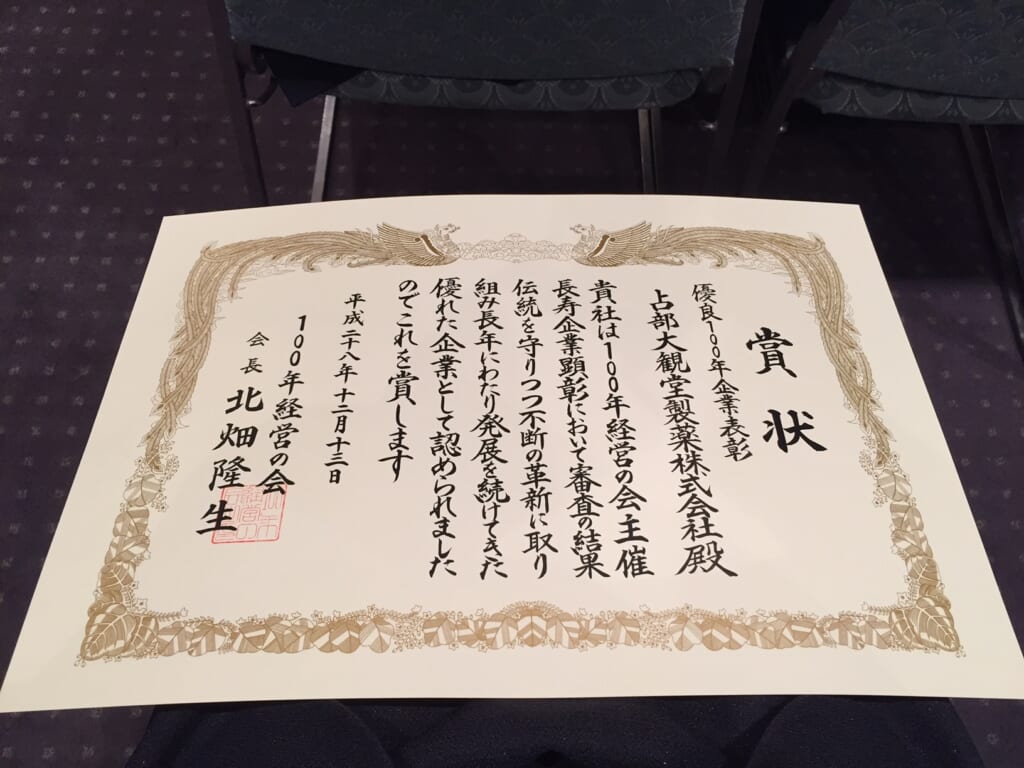 賞状
優良100年企業表彰
占部大観堂製薬株式会社殿
貴社は100年経営の会主催
長寿企業顕彰において審査の結果
伝統を守りつつ不断の革新に取り
組み長年にわたり発展を続けてきた
優れた企業として認められました
のでこれを賞します
平成二十八年十二月十三日
100年経営の会
会長 北畑隆生